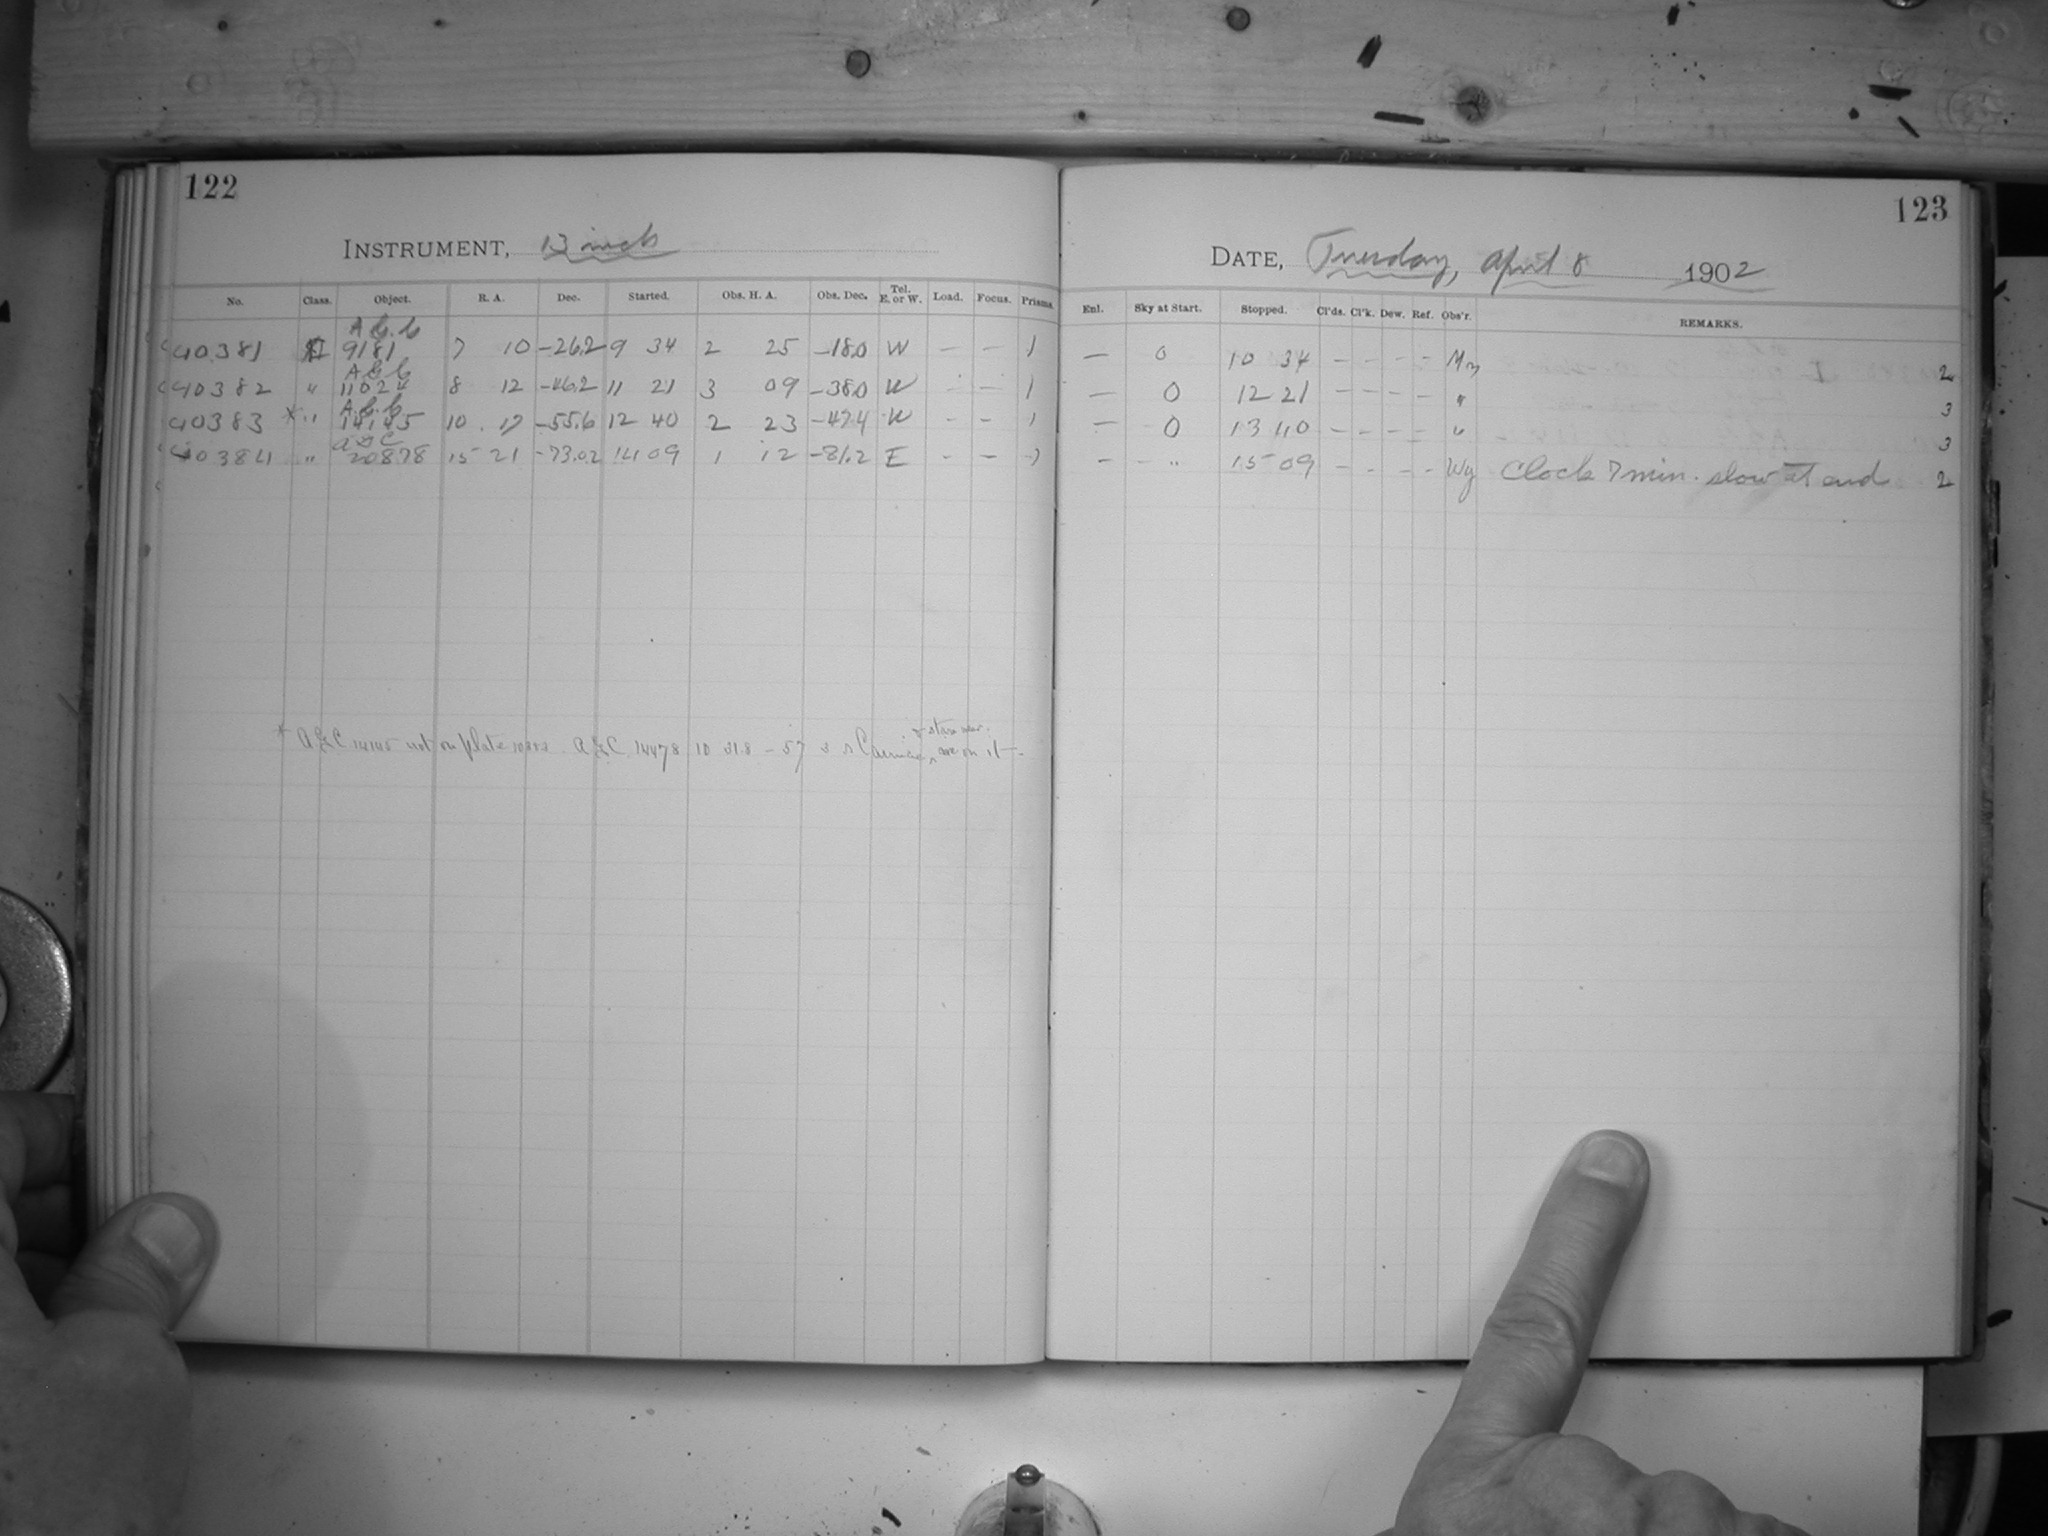 122
INSTRUMENT, 13 inch
No. Class. Object. R. A. Dec. Started. Obs. H. A. Obs. Dec. Tel. E. or W. Load. Focus. Prisms.
A.G.C.
40381 II 9181 7 10 -26.2 9 34 2 25 -18.0 W — — 1
A.G.C.
40382 " 11024 8 12 -46.2 11 21 3 09 -38.0 W - - 1
A.G.C.
40383 * " 14145 10 17 -55.6 12 40 2 23 -47.4 W - - 1
A G C
40384 " 20878 15 21 -73.02 14 09 1 12 -81.2 E - - 1
* A G C 14145 not on plate A G C 14478 10 31.8 - 57 3 s Carinae, & stars near are on it -
123
DATE, Tuesday, April 8 1902
Enl. Sky at Start. Stopped. Cl'ds. Cl'k. Dew. Ref. Obs'r. REMARKS.
— 0 10 34 - - - - My 2
— 0 12 21 - - - - " 3
— 0 13 40 - - - - " 3
- - " 15 09 - - - - Wy Clock 7 min. slow at end 2